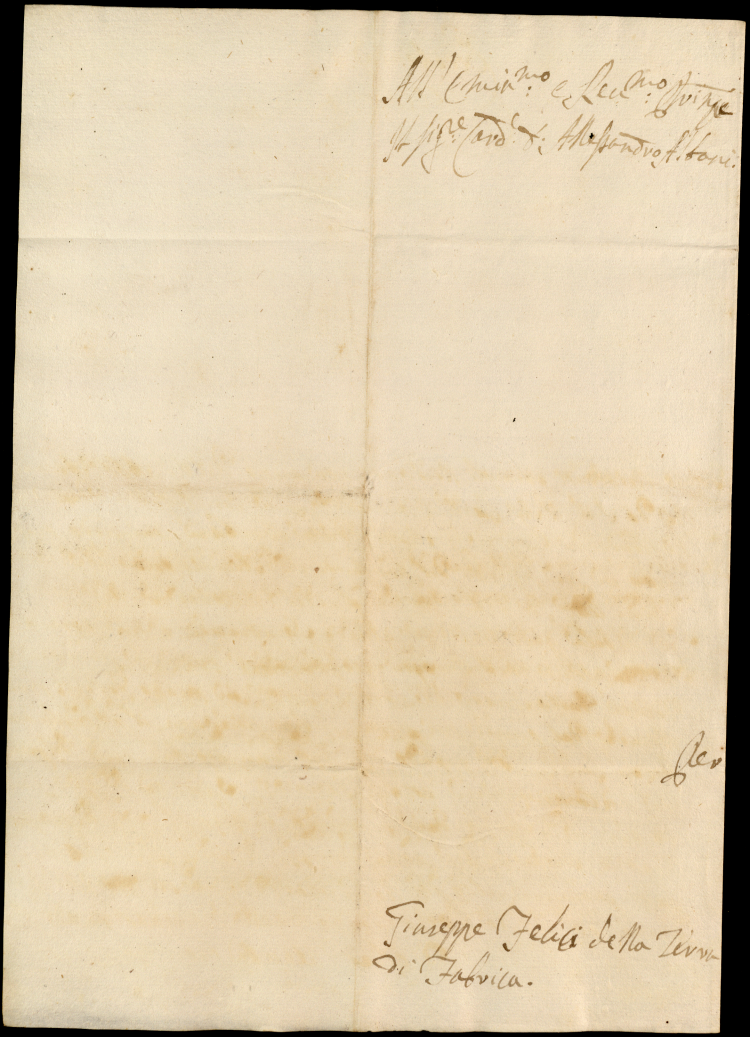 All' Emin:mo e Reu:mo Prinpe
Il sig:re Card:l D: Alessandro Albani.
Per
Giuseppe Felici della Terra
di Fabrica.